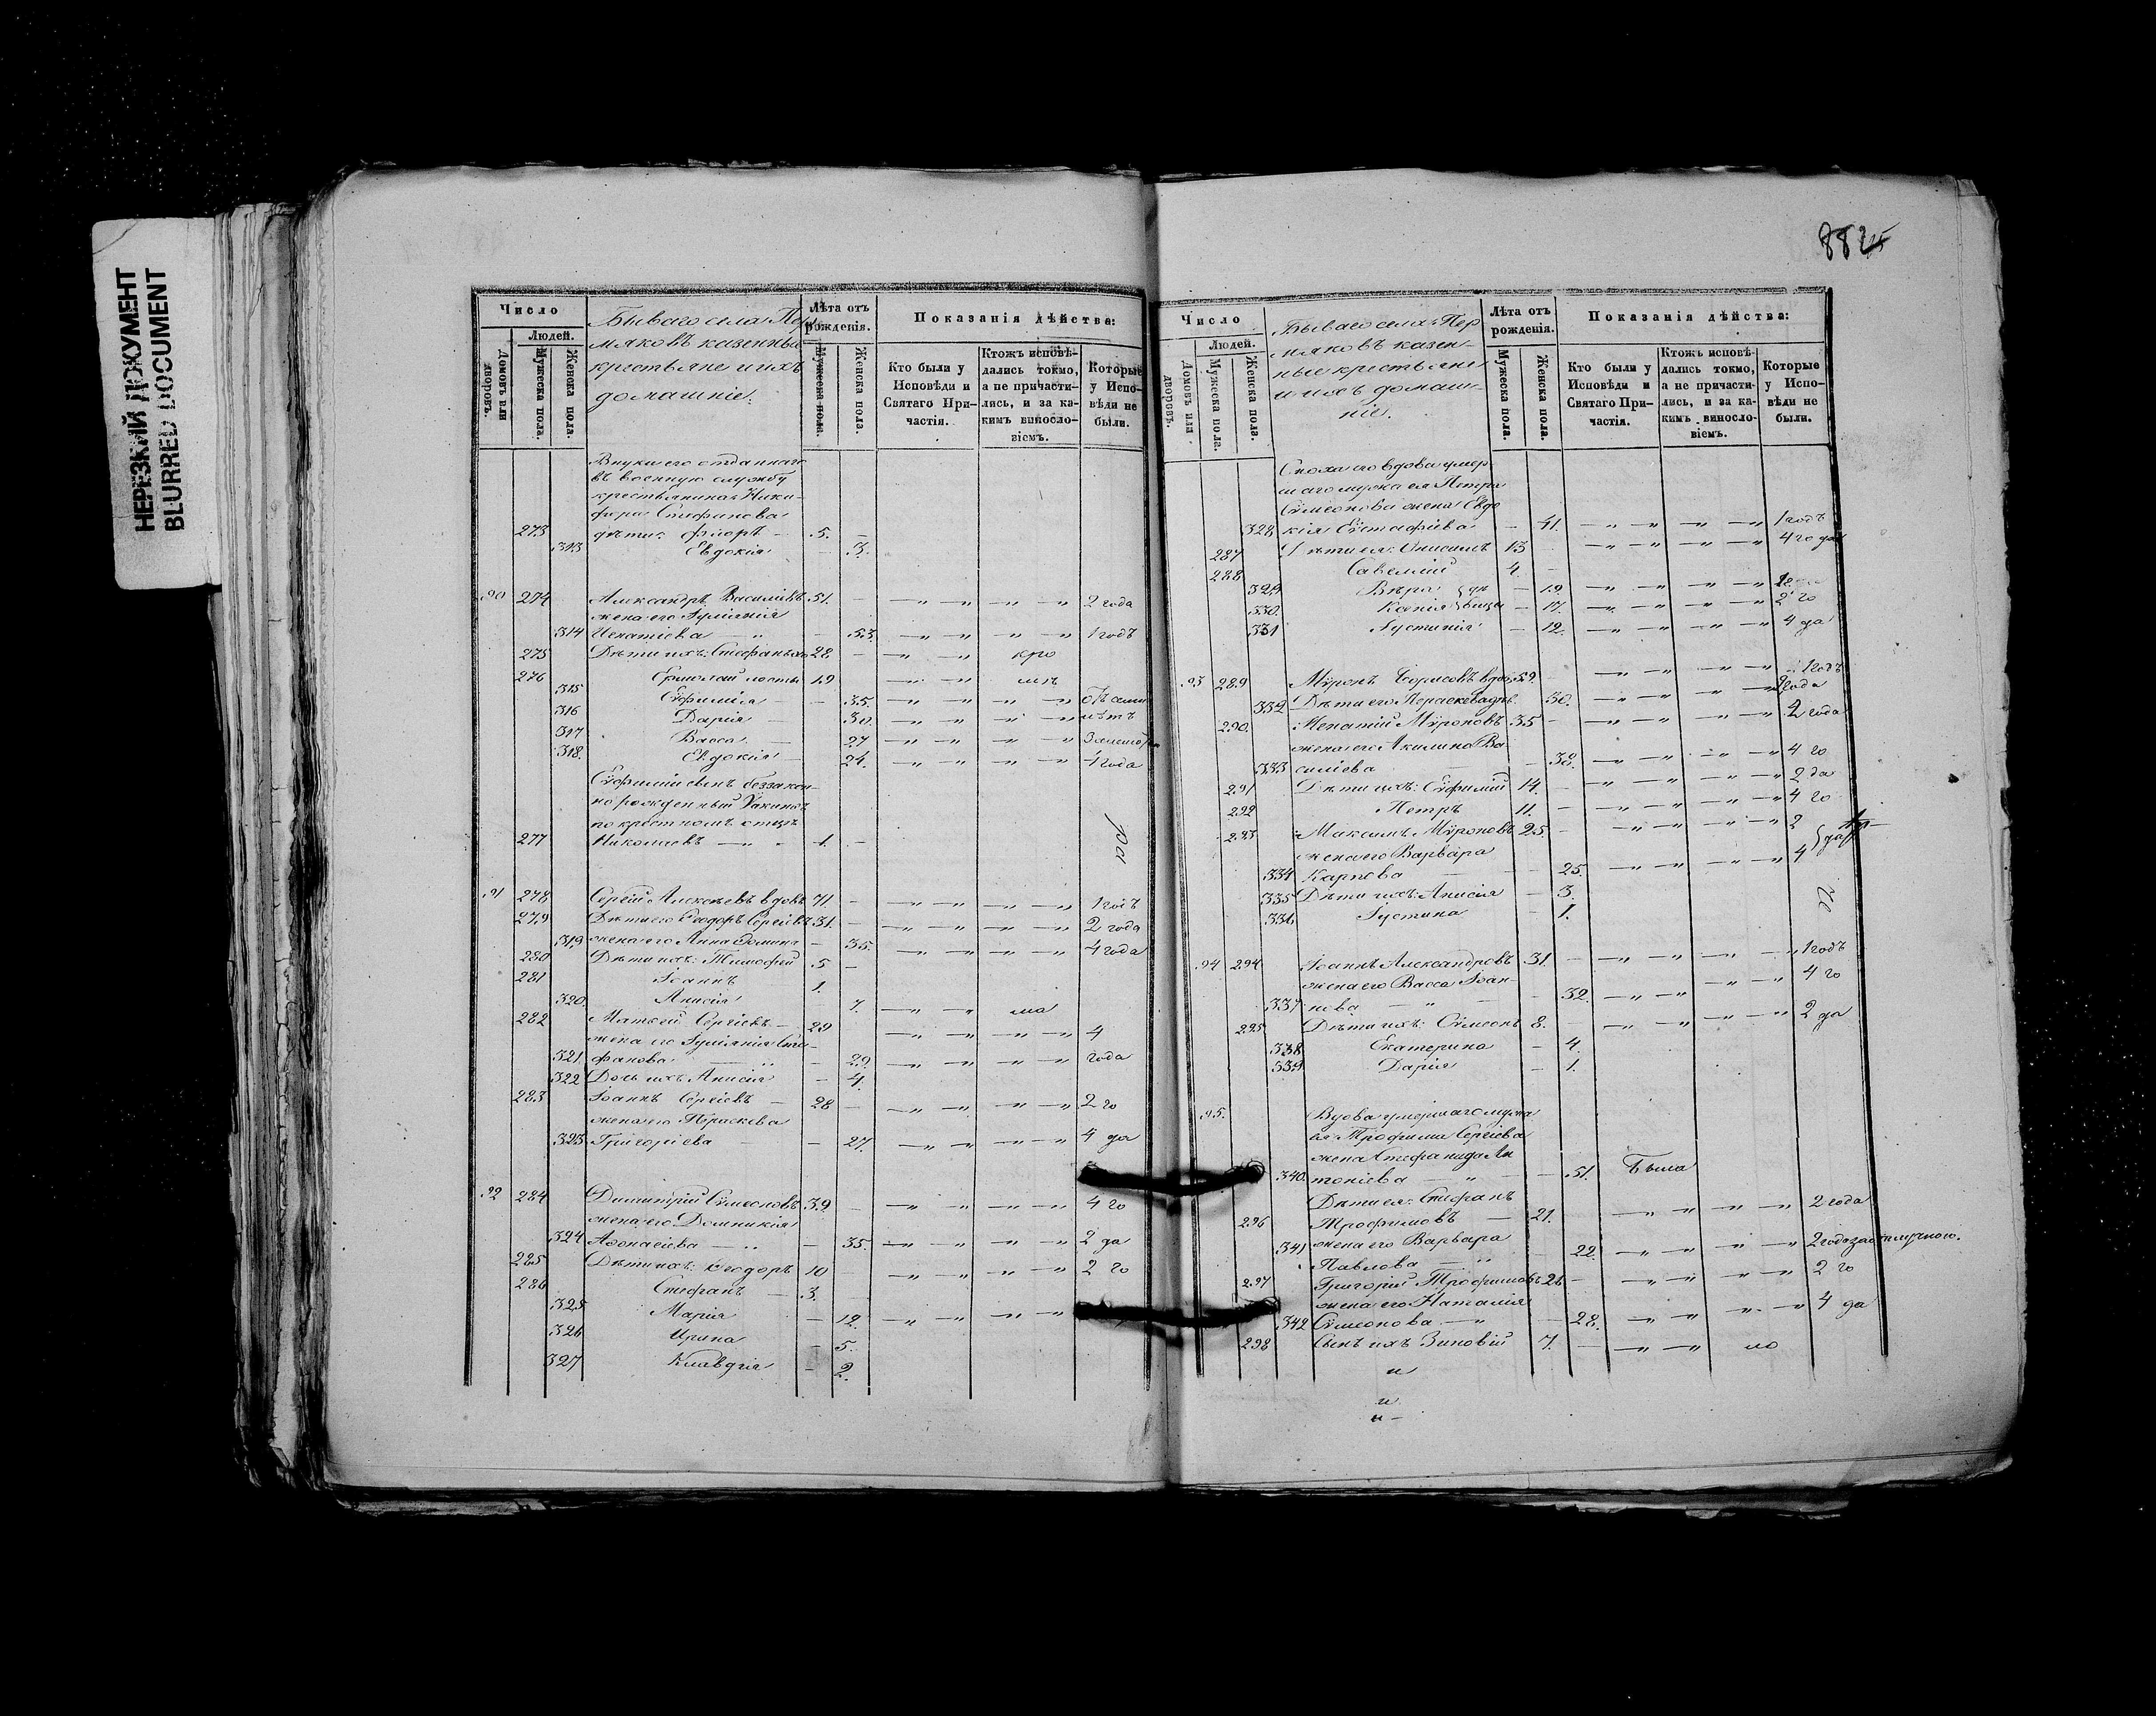 НЕРЕЗКИЙ ДОКУМЕНТ
BLURRED DOCUMENT
Число
Людей.
Домовъ или дворовъ.
Мужеска пола.
Женска пола.
Бываго села Пер
мяковъ казенные
крестьяне и ихъ
домашніе.
Лѣта отъ рожденія.
Мужеска пола.
Женска пола.
Показанія дѣйства:
Кто были у Исповѣди и Святаго Причастія.
Ктожъ исповѣдались токмо, а не причастились, и за какимъ винословіемъ.
Которые у Исповѣди не были.
Внуки его отданнаго
въ военную службу
крестьянина Ники-
фора Стефанова
273 дѣти: 5.
313 Евдокія 3.
90 274 Александръ Василіевъ 51. 2 года
жена его Іуліанія
314 Игнатіева 53. 1 годъ
275 Дѣти ихъ: Стефанъ 28
276 Ермолай 19
315 Евфимія 35.
316 Дарія 30.
317 Васса 27
318. Евдокія 24. года
Евфиміи сынъ беззакон-
но рожденный Іакинѳъ
по крестномъ отцѣ
277 Николаевъ 1.
91 278 Сергій Алексѣевъ вдовъ 71 1 годъ
279 Дѣти его Ѳеодоръ Сергіевъ 31. 2 года
319 жена его Анна 35. 4 года
280 Дѣти ихъ: Тимофей 5
281 Іоаннъ 1.
320. Анисія 7. ла
282 Матѳей Сергіевъ 29 4
жена его Іуліанія Сте-
321 фанова 29 года
322 Дочь ихъ Анисія 4.
283 Іоаннъ Сергіевъ 28 2 го
жена его Параскева
323 Григоріева 27. 4 да
92 284 Димитрій Сѵмеоновъ 39 4 го
жена его Домникія
324 Аѳонасіева 35. 2 да
285 Дѣти ихъ: Ѳеодоръ 10 2 го
286 Стефанъ 3.
325 Марія 12.
326 Ирина 5.
327 Клавдія 2.
882
Число
Людей.
Домовъ или дворовъ.
Мужеска пола.
Женска пола.
Бываго села Пер
мяковъ казен-
ные крестьяне
и ихъ домаш-
ніе.
Лѣта отъ рожденія.
Мужеска пола.
Женска пола.
Показанія дѣйства:
Кто были у Исповѣди и Святаго Причастія.
Ктожъ исповѣдались токмо, а не причастились, и за какимъ винословіемъ.
Которые у Исповѣди не были.
Сноха его вдова умер
шаго мужа ея Петра
Сѵмеонова жена Евдо
328 кія Евстафіева 41. 1 годъ
287 Дѣти ея: Онисимъ 13 4 го да
288 Савелій 4.
329 Вѣра 19
330. Ксенія 17. 2 го
331 Іустинія 12. 4 да
93 289 Мѵронъ Борисовъ вдовъ 59. 1 годъ
332 Дѣти его Параскева 30. года
290. Игнатій Мѵроновъ 35 2 года
жена его Акилина Ва
333 силіева 38. 4 го
291 Дѣти ихъ: Евфимій 14. 2 да
292 Петръ 11. 4 го
293 Максимъ Мѵроновъ 25. 2
жена его Варвара
334 Карпова 25. 4 да
335 Дѣти ихъ: Анисія 3.
336 Іустина 1.
94 294 Іоаннъ Александровъ 31. 1 годъ
жена его Васса Іоан-
337 нова 32. 4 го
295 Дѣти ихъ: Сѵмеонъ 8. 2 да
338 Екатерина 4.
339 Дарія 1.
95. Вдова умершаго мужа
ея Трофима Сергіева
жена Степанида Ан
340. тоніева 51. Была
Дѣти ея: Стефанъ
296 Трофимовъ 21. 2 года
341 жена его Варвара
Павлова 22. 2 года за отлучкою.
297 Григорій Трофимовъ 28 2 го
жена его Наталія
342 Сѵмеонова 28. 4 да
298 Сынъ ихъ Зиновій 7. ло